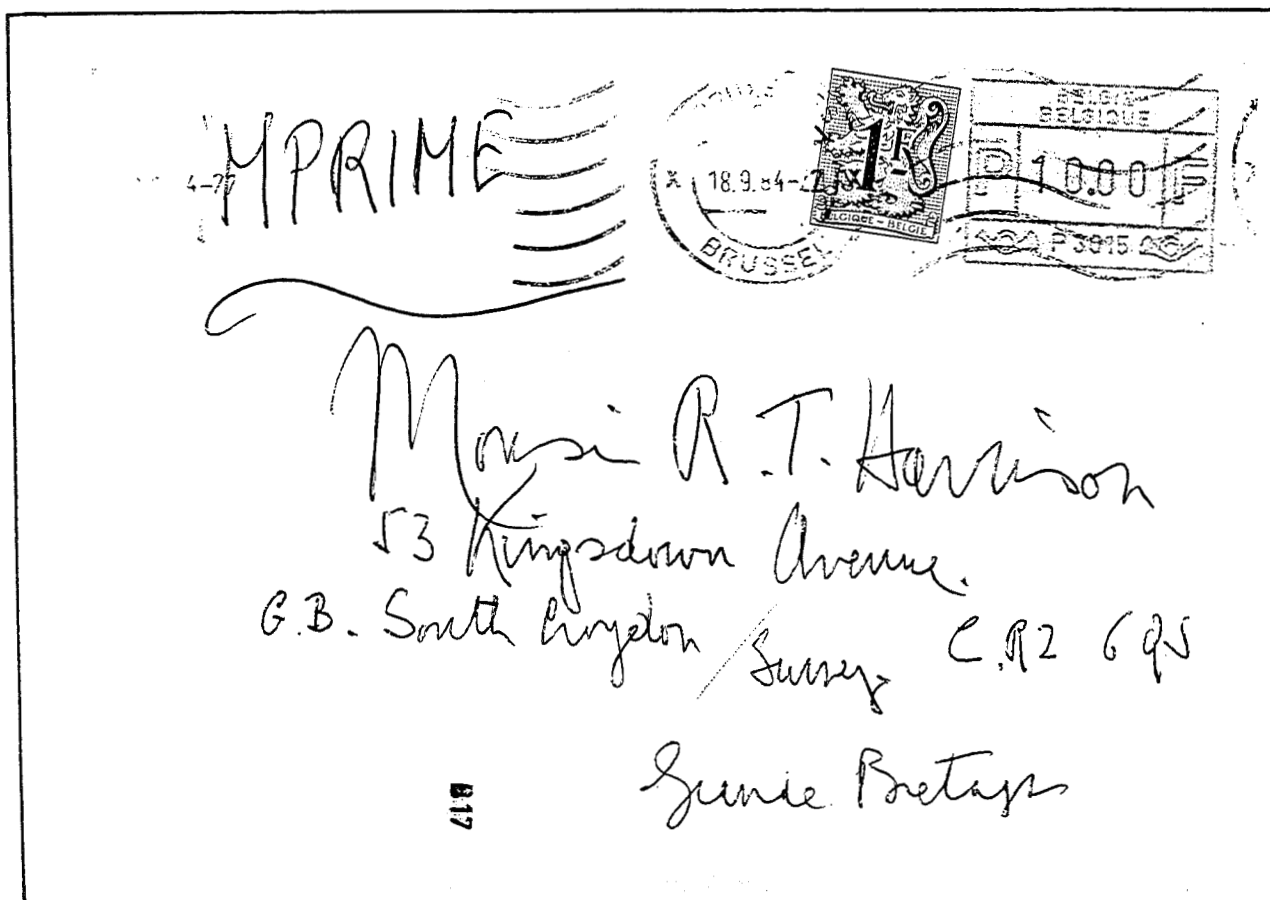 IMPRIME
18.9.84-22
BRUSSEL
1F
BELGIQUE - BELGIË
BELGIË
BELGIQUE
P 10.00 F
P3915
Monsieur R.T. Harrison
53 Kingsdown Avenue.
G.B. South Croydon / Surrey. C.R2 6QJ
Grande Bretagne
B17